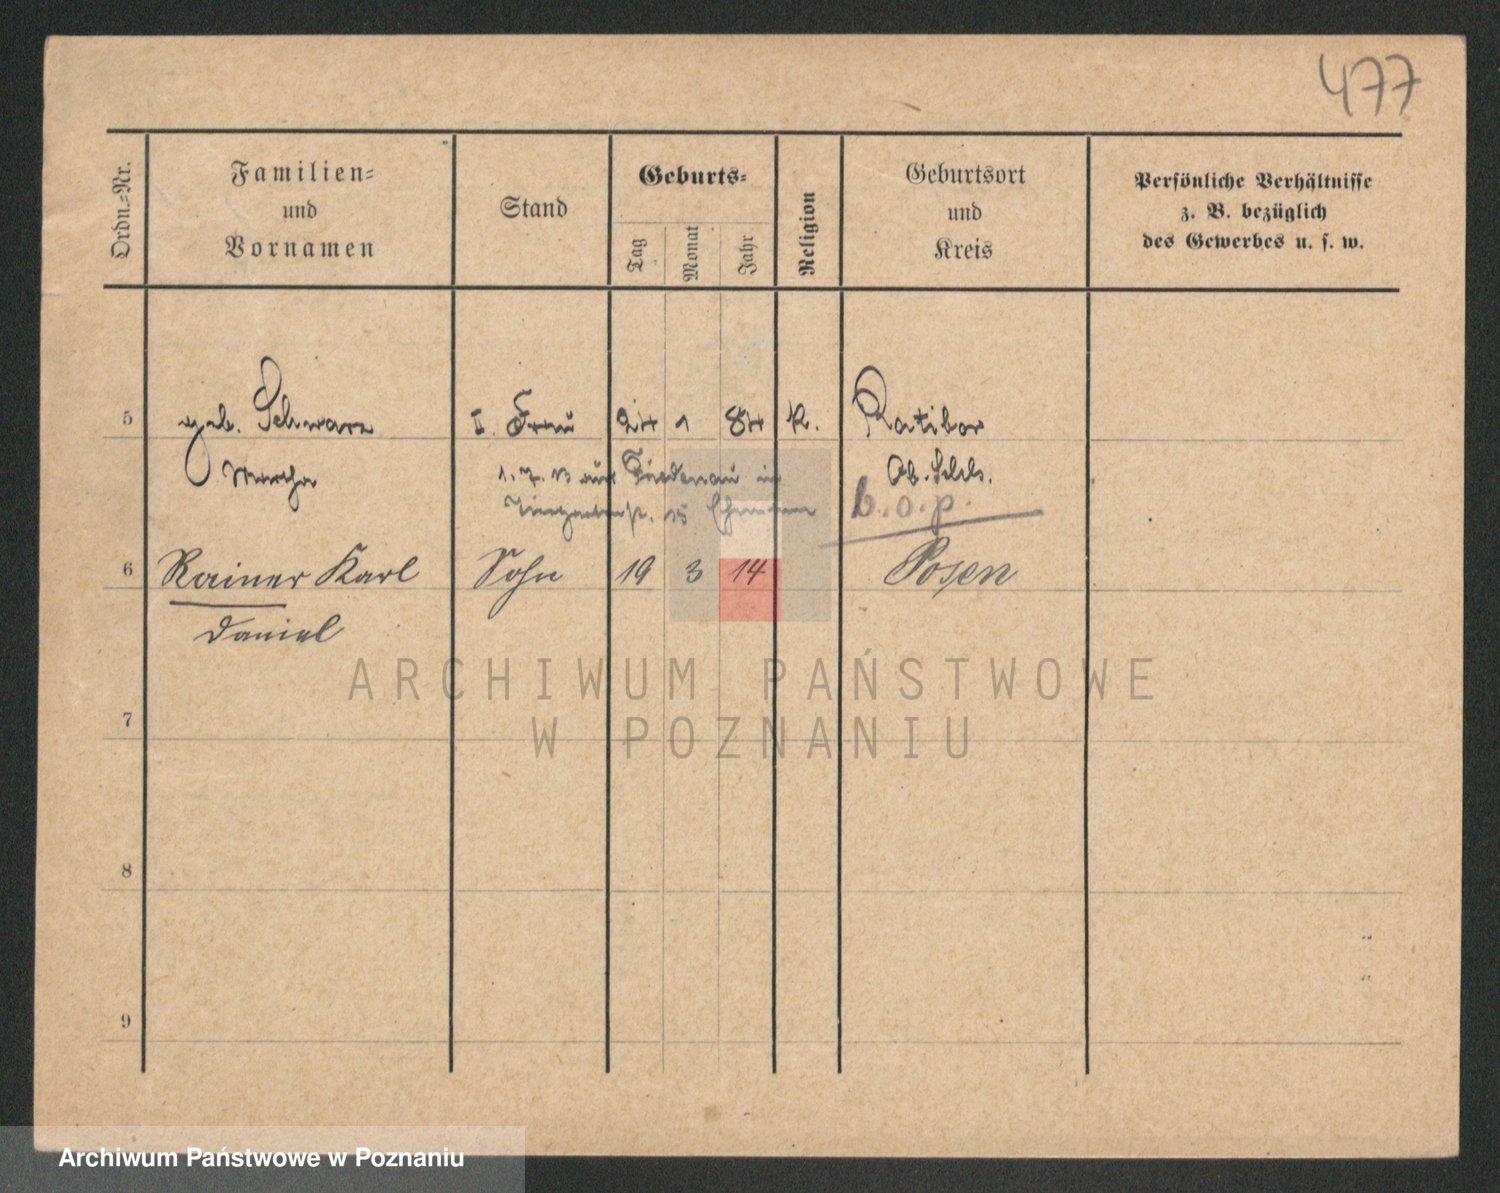 477
Ordn.-Nr.
Familien-
und
Vornamen
Stand
Geburts-
Tag
Monat
Jahr
Religion
Geburtsort
und
Kreis
Persönliche Verhältnisse
z. B. bezüglich
des Gewerbes u. s. w.
5 geb. Schwarz I. Frau 24 1 84 K. Ratibor
Martha 1. 7. 13 aus Friedenau in Ob. Schls.
Tiergartenstr. 15 Ehemann b. o. p.
6 Rainer Karl Sohn 19 3 14 Posen
Daniel
ARCHIWUM PAŃSTWOWE
W POZNANIU
7
8
9
Archiwum Państwowe w Poznaniu